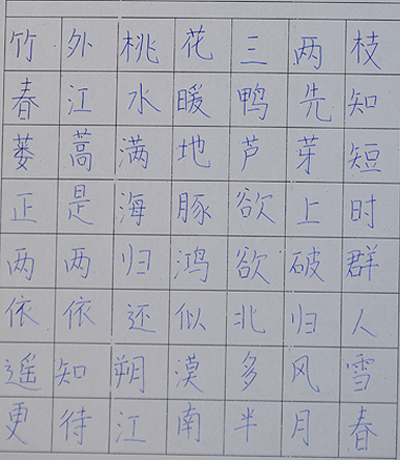 竹外桃花三两枝
春江水暖鸭先知
蒌蒿满地芦芽短
正是海豚欲上时
两两归鸿欲破群
依依还似北归人
遥知朔漠多风雪
更待江南半月春